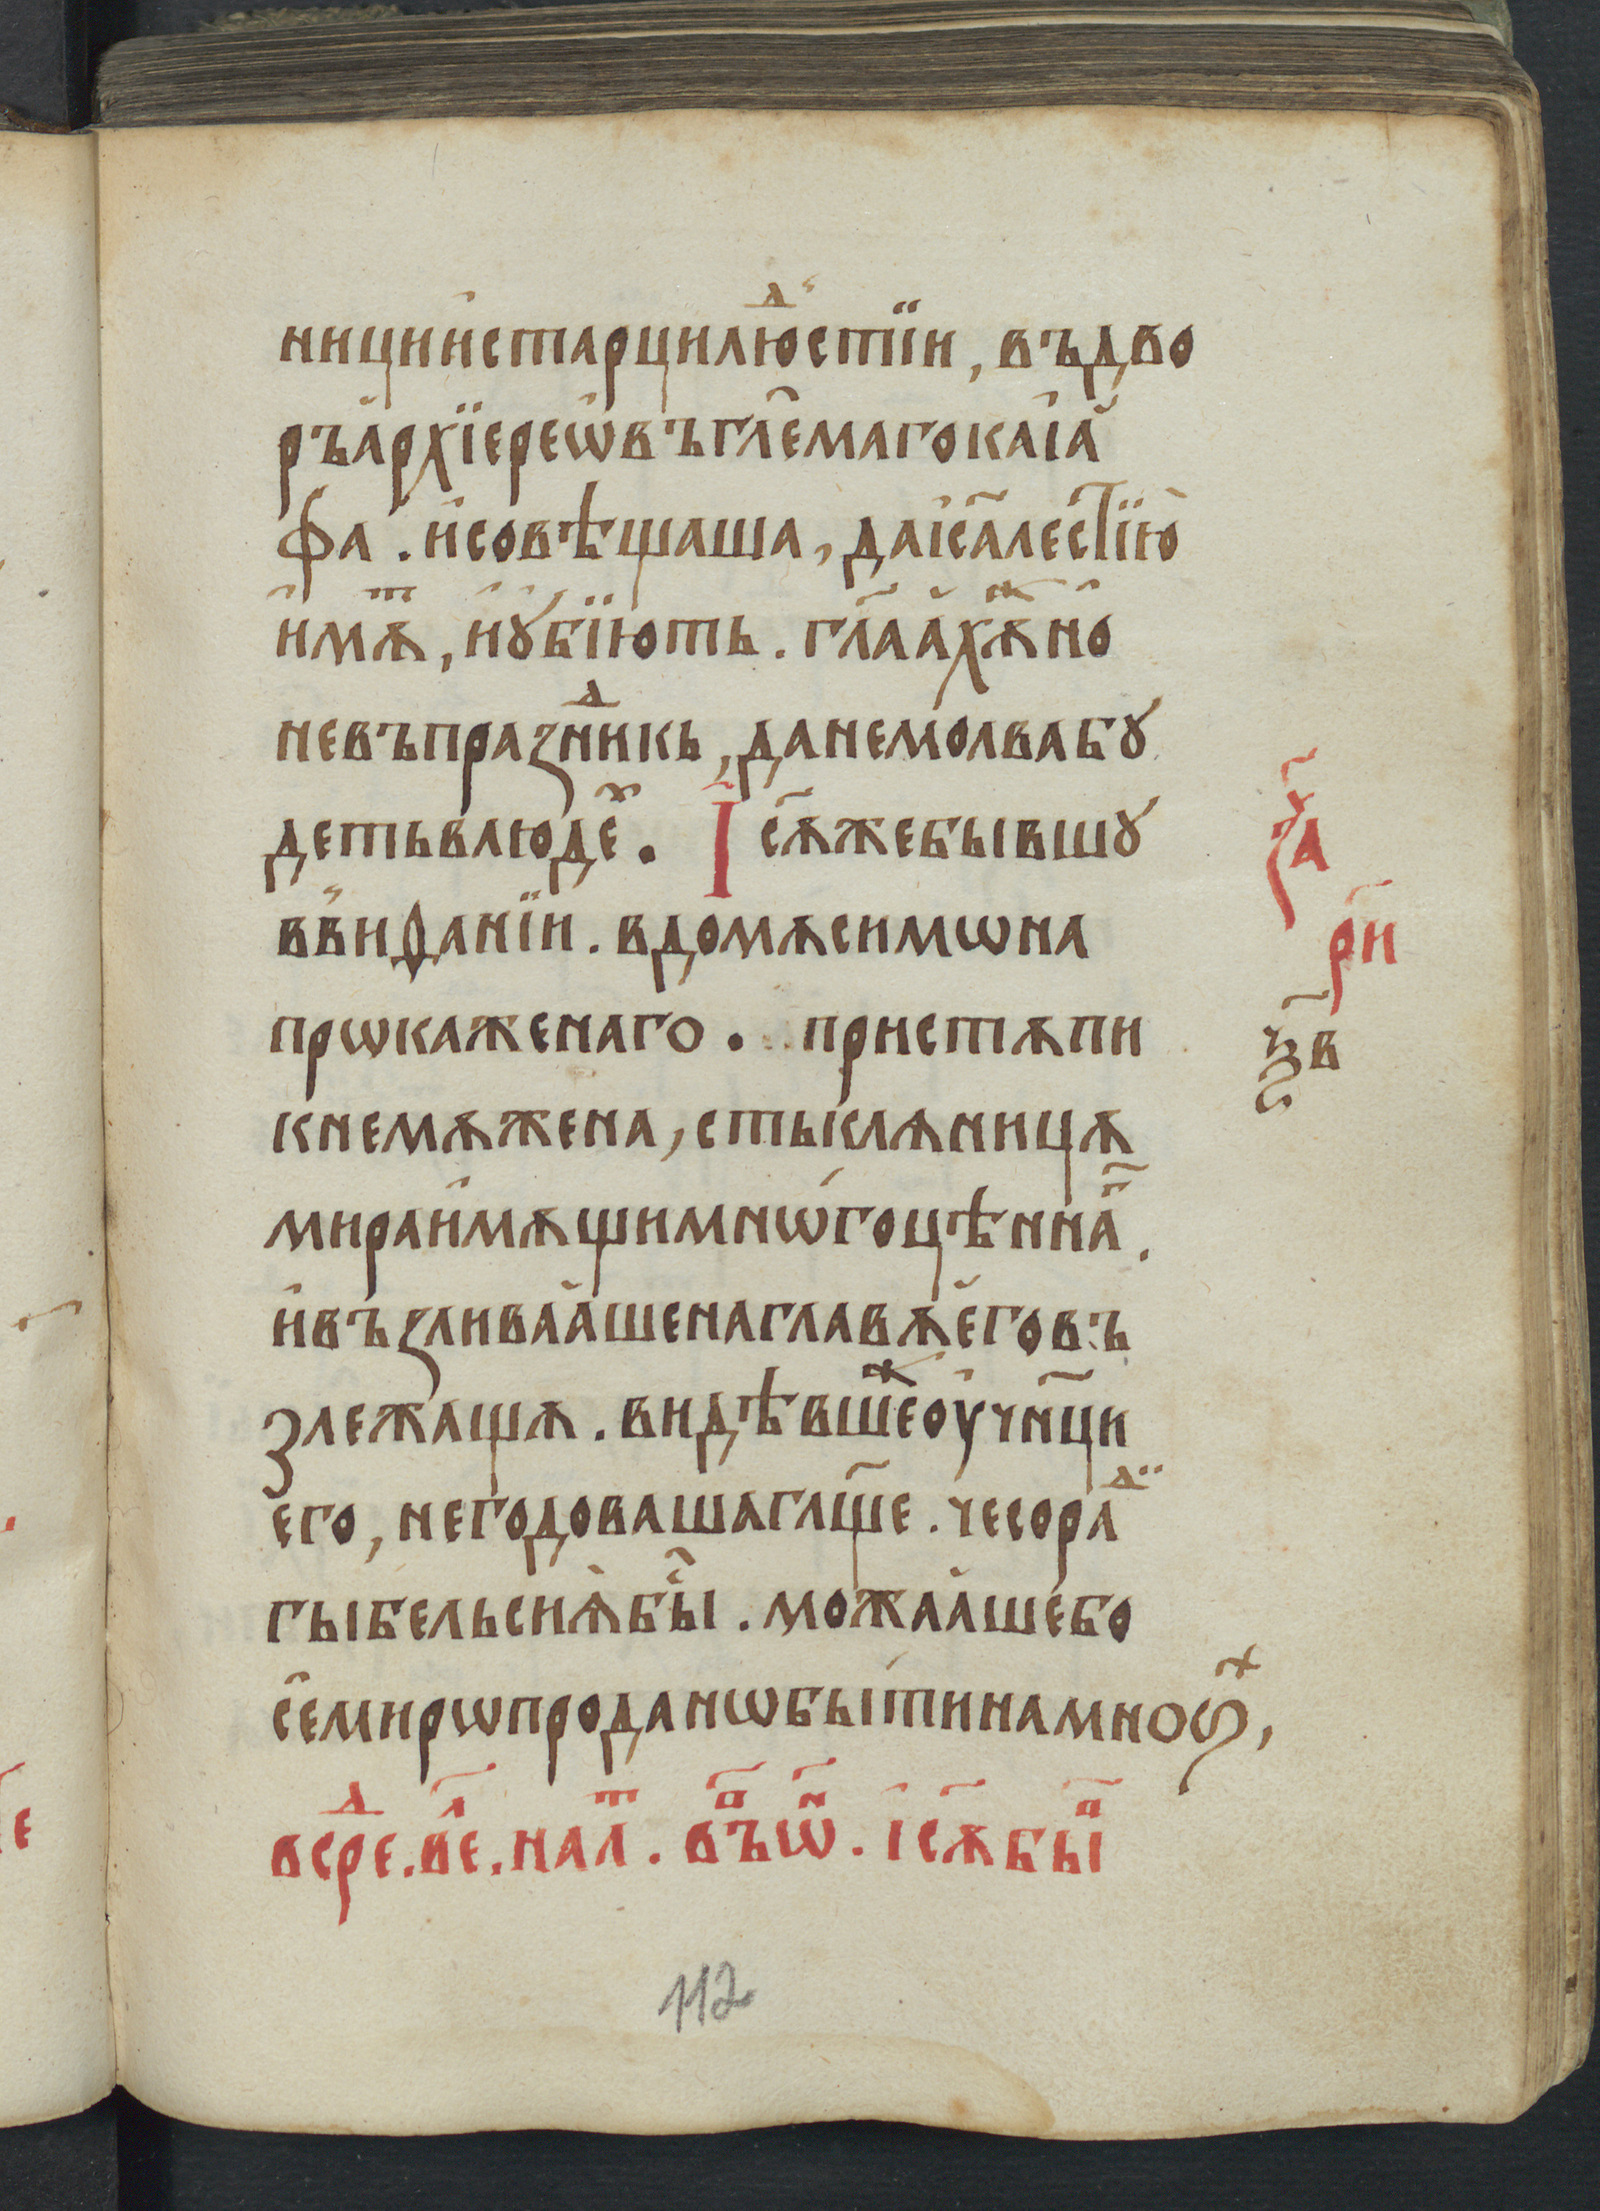 ници и҆ старци лю́ⷣстїи, въ дво
ръ а҆рхїерео҆въ гл҃емаго каїа҆
фа . и҆ совѣщаша, да і҆с҃а лестїю҆
и҆мѫⷮ, и҆ ꙋ҆бїють . гл҃аа҆хѫⷤ но҆
не въ празⷣникь, да не молва бꙋ
деть в людеⷯ . І҆с҃ѫ же бывшꙋ
в виѳанїи . в домѫ симѡна
прѡкаженаго . пристѫпи
к немѫ жена, стькляницѫ
мира и҆мѫщи мнѡ́гоцѣнна҃ .
и҆ възливаа҆ше на главѫ е҆го въ
злежащѫ . видѣвшеⷤ оу҆чн҃ци
его, негодоваша гл҃ще . чесо раⷣ
гыбель сиѧ̀ быⷭ҇ . можаа҆ше бо
се҆ мирѡ проданѡ быти на мноѕⷯ,
в среⷣ . веⷧ҇ . на лⷮ . в̾ъ ѿ . і҆с҃ѫ быⷡ
за҃
рн҃
ѯв҃
112